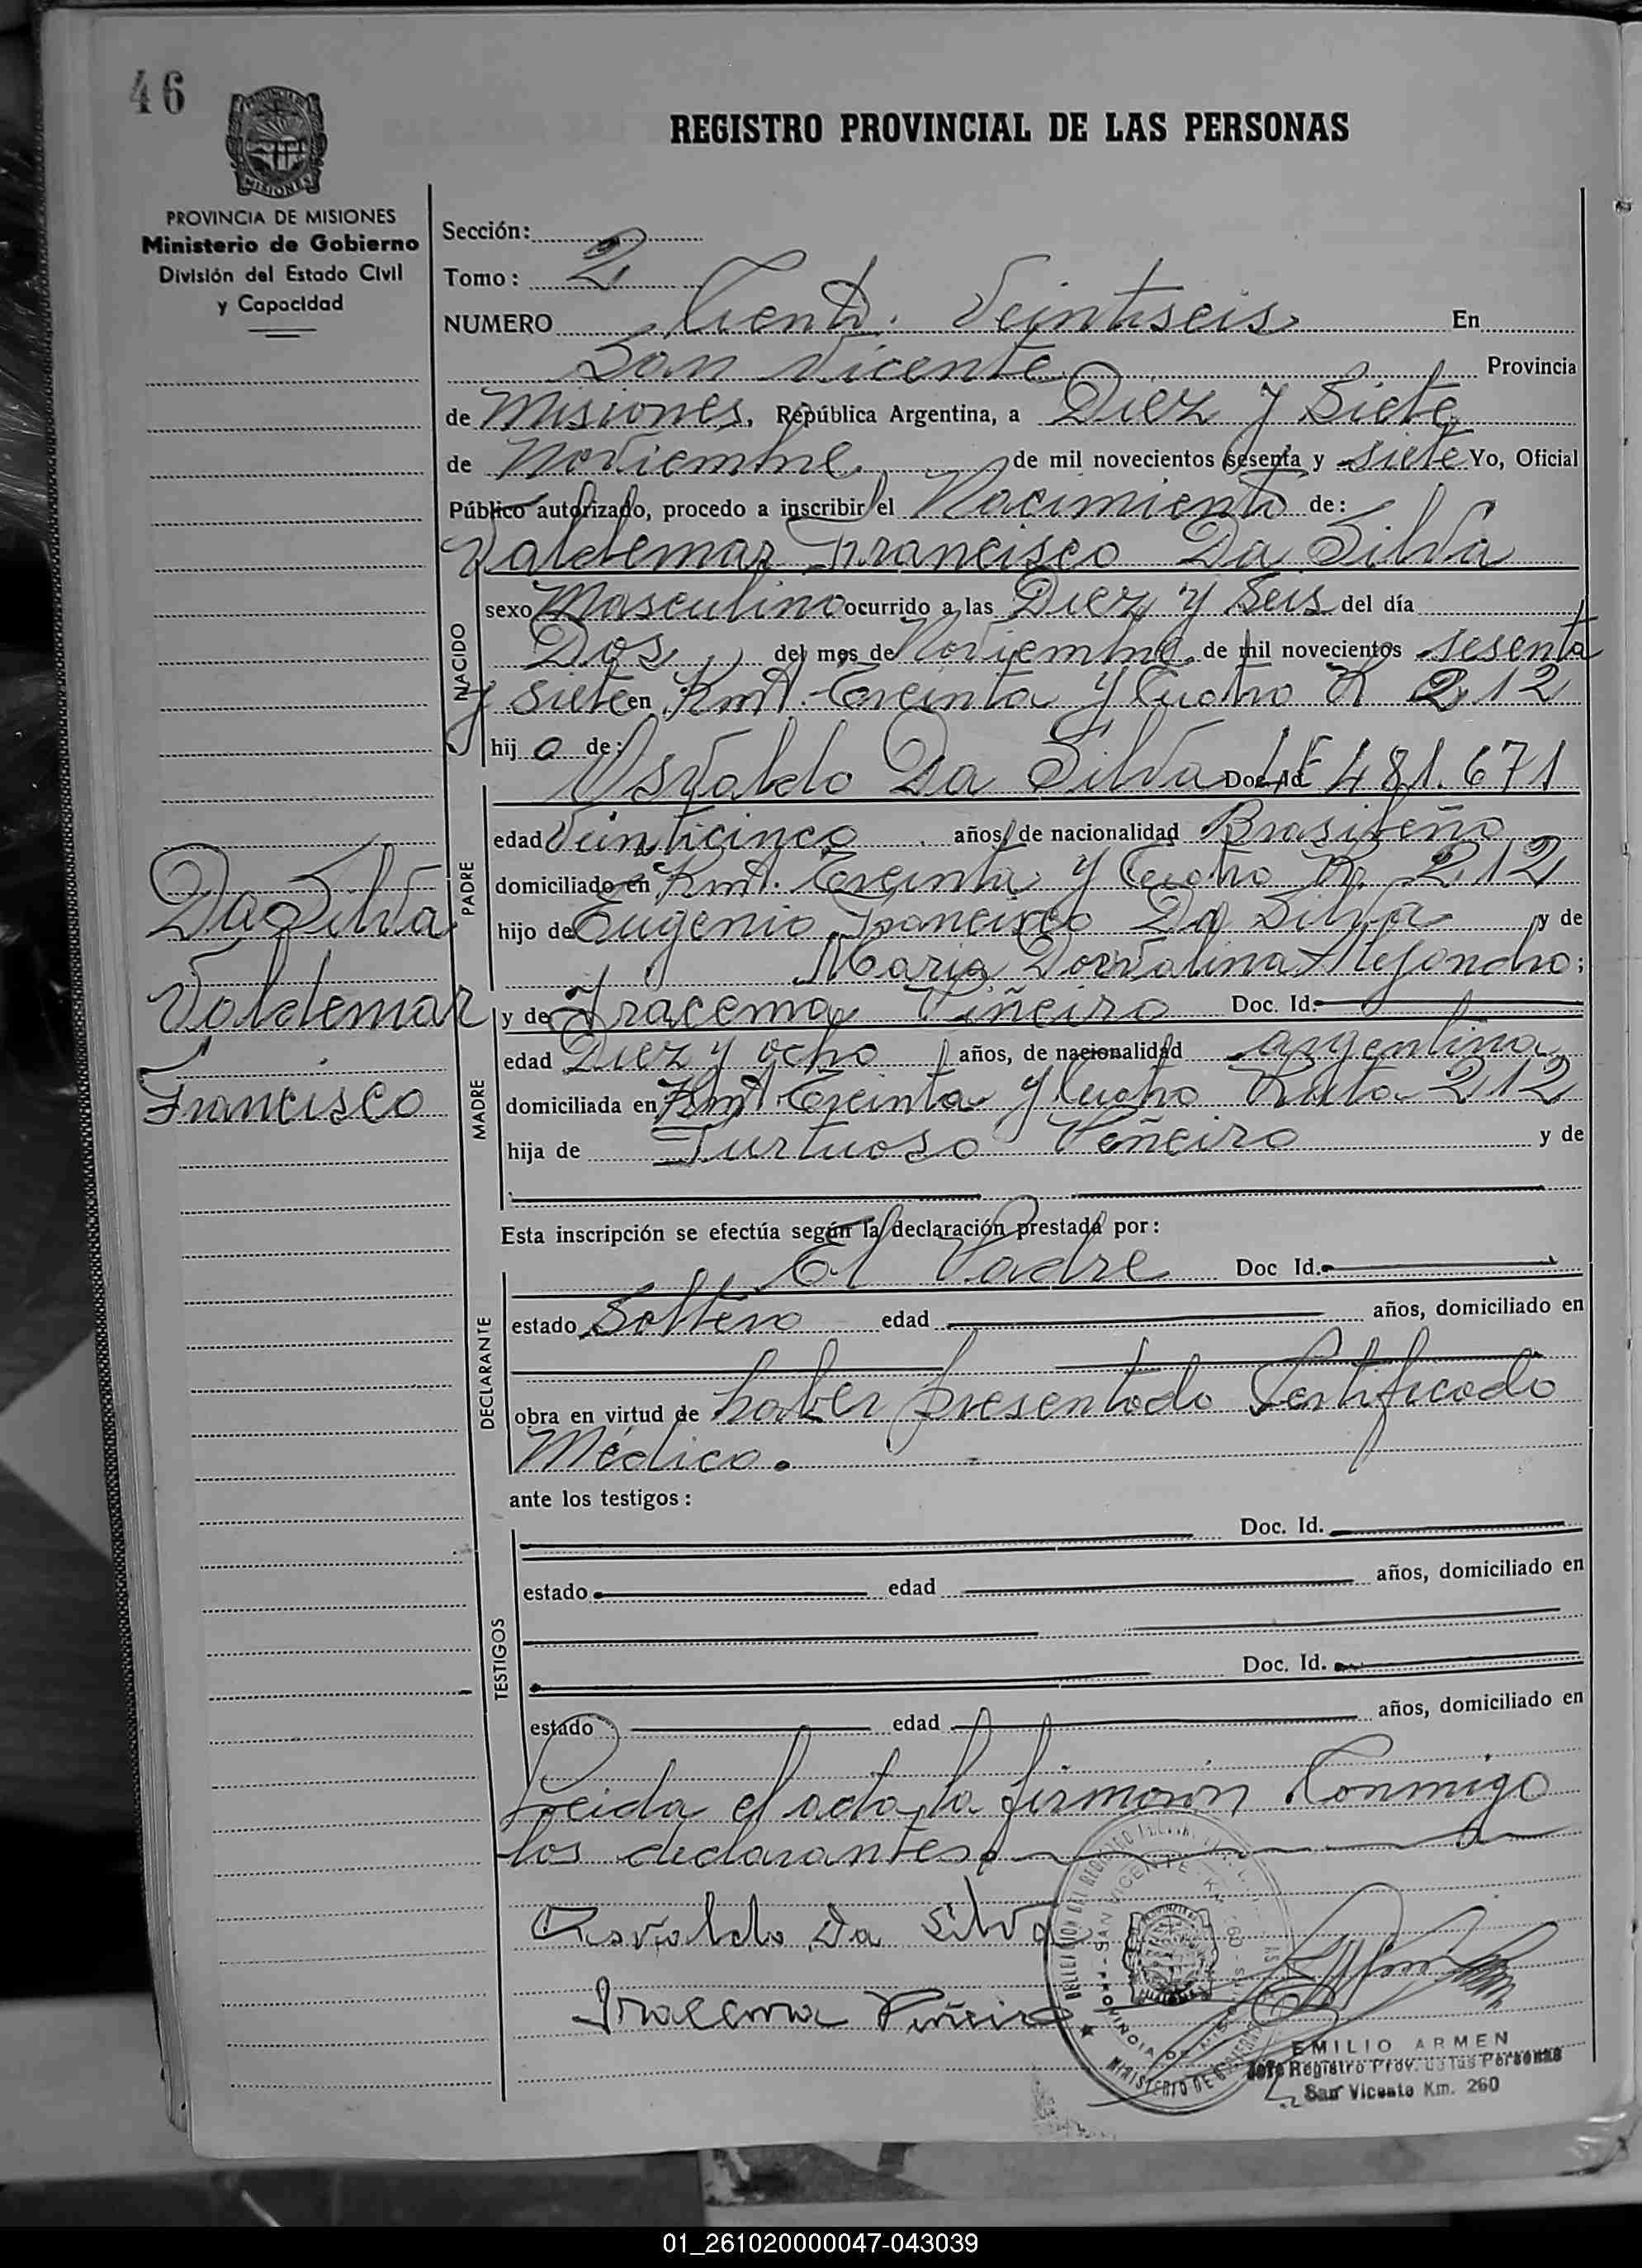 46
REGISTRO PROVINCIAL DE LAS PERSONAS
MISIONES
PROVINCIA DE MISIONES
Ministerio de Gobierno
División del Estado Civil
y Capacidad
Sección:
Tomo: 2
NUMERO Ciento Veintiseis En
San Vicente Provincia
de Misiones, República Argentina, a Diez y Siete
de Noviembre de mil novecientos sesenta y siete Yo, Oficial
Público autorizado, procedo a inscribir el Nacimiento de:
Valdemar Francisco Da Silva
NACIDO
sexo Masculino ocurrido a las Diez y Seis del día
Dos del mes de Noviembre de mil novecientos sesenta
y siete en Kmt. Treinta y Cuatro R 212
hij o de:
Osvaldo Da Silva Doc. Id. 481.671
PADRE
edad Veinticinco años, de nacionalidad Brasileño
domiciliado en Kmt. Treinta y Cuatro R. 212
hijo de Eugenio Francisco Da Silva y de
Maria Dorvalina
Da Silva
Valdemar
Francisco
y de Iracema Piñeiro Doc. Id.
MADRE
edad Diez y ocho años, de nacionalidad argentina
domiciliada en Kmt Treinta y Cuatro Ruta 212
hija de Turtuoso Piñeiro y de
Esta inscripción se efectúa según la declaración prestada por:
El Padre Doc Id.
DECLARANTE
estado Soltero edad años, domiciliado en
obra en virtud de haber presentado Certificado
Médico.
ante los testigos:
TESTIGOS
Doc. Id.
estado edad años, domiciliado en
Doc. Id.
estado edad años, domiciliado en
Leida el acta la firmarón Conmigo
los declarantes.
Osvaldo Da Silva
Iracema Piñeiro
EMILIO ARMEN
Jefe Registro Prov. de las Personas
San Vicente Km. 260
01_261020000047-043039